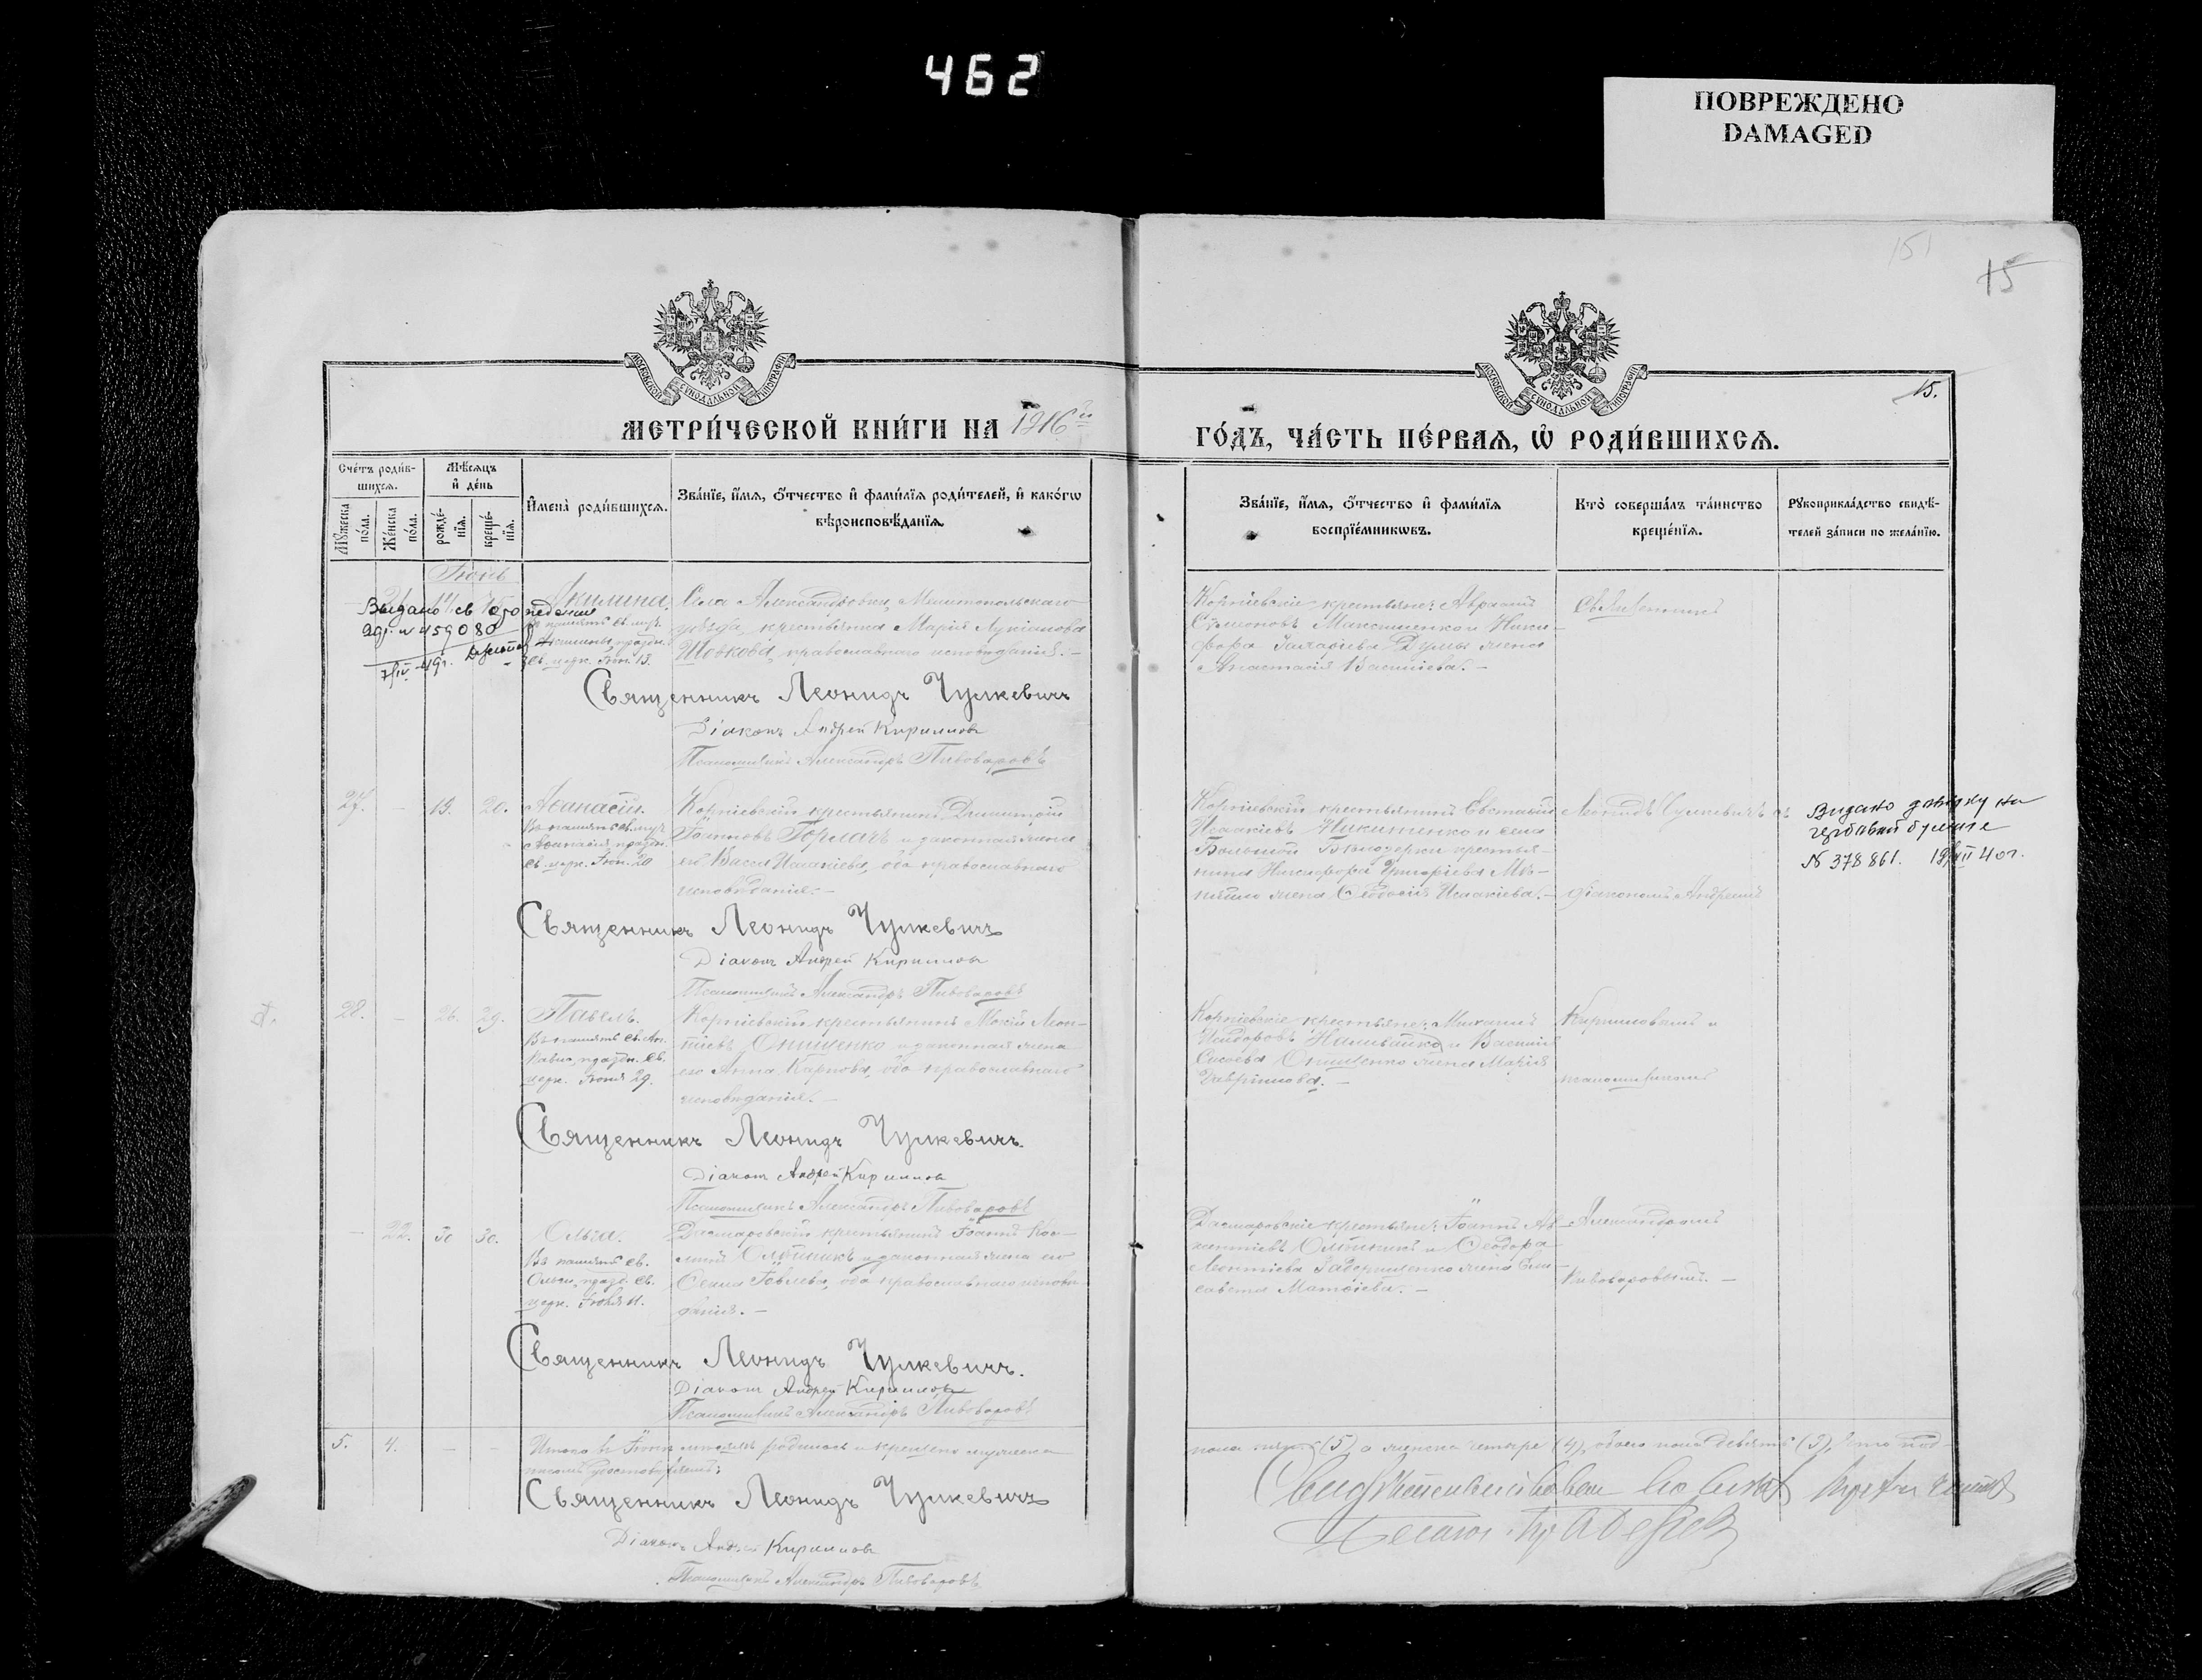 462
ПОВРЕЖДЕНО
DAMAGED
151
15
МОСКОВСКОЙ СѴНОДАЛЬНОЙ ТИПОГРАФІИ
МОСКОВСКОЙ СѴНОДАЛЬНОЙ ТИПОГРАФІИ
15.
МЕТРИ́ЧЕСКОЙ КНИ́ГИ НА 1916й
ГО́ДЪ, ЧА́СТЬ ПЕ́РВАЯ, Ѿ РОДИ́ВШИХСЯ.
Сче́тъ роди́в-
шихся.
Мѣ́сяцъ
и҆ де́нь
Мꙋ́жеска
по́ла.
Же́нска
по́ла.
рожде́-
нїя.
креще́-
нїя.
И҆мена̀ роди́вшихся.
Зва́нїе, и҆́мя, ѻ҆́тчество и҆ фами́лїя роди́телей, и҆ како́гѡ
вѣроисповѣ́данїя.
Зва́нїе, и҆́мя, ѻ҆́тчество и҆ фами́лїя
воспрїе́мникѡвъ.
Кто̀ соверша́лъ та́инство
креще́нїя.
Рꙋкоприкла́дство свидѣ́-
телей за́писи по жела́нїю.
Іюнь
Выдано св о рождении
459080
Акилина.
св. церк. Іюн. 13.
Села Александровки, Мелитопольскаго
уѣзда, крестьянка Марія Лукіанова
Шовкова, православнаго исповѣданія. –
Корніевскіе крестьяне: Авраамій
Сѵмеоновъ Максименко и Ники-
фора Захаріева Думы жена
Анастасія Василіева. –
Священникъ
Священникъ Леонидъ Чулкевичъ
Діаконъ Андрей Кирилловъ
Псаломщикъ Александръ Пивоваровъ
27. – 19. 20. Аѳанасій.
Въ память св. муч.
Аѳанасія, праздн.
св. церк. Іюн. 20
Корніевскій крестьянинъ Димитрій
Іоанновъ Горлачъ и законная жена
его Васса Исаакіева, оба православнаго
исповѣданія. –
Корніевскій крестьянинъ Евстафій
Исаакіевъ Никитенко и села
Большой Бѣлозерки крестья-
нина Никифора Григоріева
жена Ѳеодосія Исаакіева. –
Леонидъ Чулкевичъ съ
діакономъ Андреемъ
Видано довідку на
гербовий бумаге
№ 378861. 19/XII 40г.
Священникъ Леонидъ Чулкевичъ
Діаконъ Андрей Кирилловъ
Псаломщикъ Александръ Пивоваровъ
28. – 26. 29. Павелъ.
Въ память св. Ап.
Павла, праздн. св.
церк. Іюня 29.
Корніевскій крестьянинъ Мокій Леон-
тіевъ Онищенко и законная жена
его Анна Карпова, оба православнаго
исповѣданія. –
Корніевскіе крестьяне: Михаилъ
Исидоровъ Наливайко и Василія
Сысоева Онищенко жена Марія
Гавріилова. –
Кирилловымъ и
псаломщикомъ
Священникъ Леонидъ Чулкевичъ.
Діаконъ Андрей Кирилловъ
Псаломщикъ Александръ Пивоваровъ
– 22. 30 30. Ольга.
Въ память св.
Ольги, празд. св.
церк. Іюля 11.
крестьянинъ Іоаннъ Кос-
минъ Олѣйникъ и законная жена его
Іовлева, оба православнаго исповѣ-
данія. –
крестьяне: Іоаннъ
Олѣйникъ и Ѳеодора
Леонтіева Задорожненко жена Ели-
савета Матѳіева. –
Александромъ
Пивоваровымъ. –
Священникъ Леонидъ Чулкевичъ.
Діаконъ Андрей Кирилловъ
Псаломщикъ Александръ Пивоваровъ
5. 4. – – Итого въ Іюнѣ мѣсяцѣ родилось и крещено мужеска
пола пять (5), а женска четыре (4), обоего пола девять (9), что под-
писомъ удостовѣряемъ:
Священникъ Леонидъ Чулкевичъ
Діаконъ Андрей Кирилловъ
Псаломщикъ Александръ Пивоваровъ